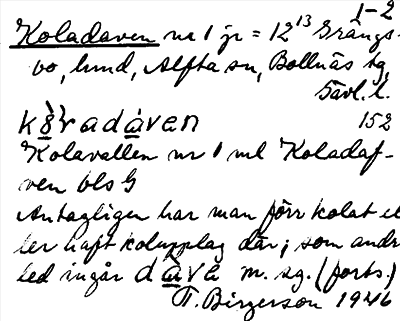 1-2
Koladaven nr 1 jr = 12¹³ Grängs-
bo, hmd, Alfta sn, Bollnäs tg,
Gävl. l.
kò̀radàven 152
Kolavallen nr 1 ml Koladaf-
ven bls G
Antagligen har man förr kolat el-
ler haft kolupplag där; som andra
led ingår dàve m. sg. (forts.)
T. Birgerson 1946